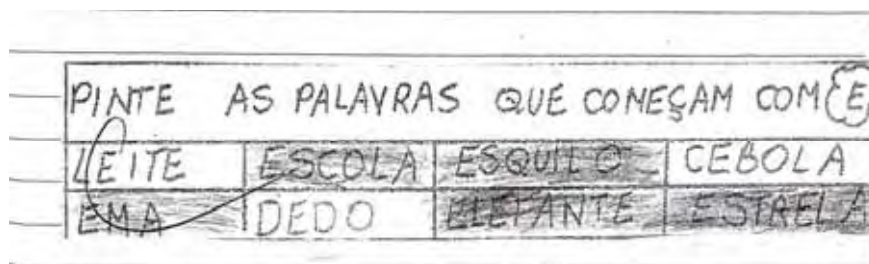 PINTE AS PALAVRAS QUE COMEÇAM COM E
LEITE ESCOLA ESQUILO CEBOLA
EMA DEDO ELEFANTE ESTRELA